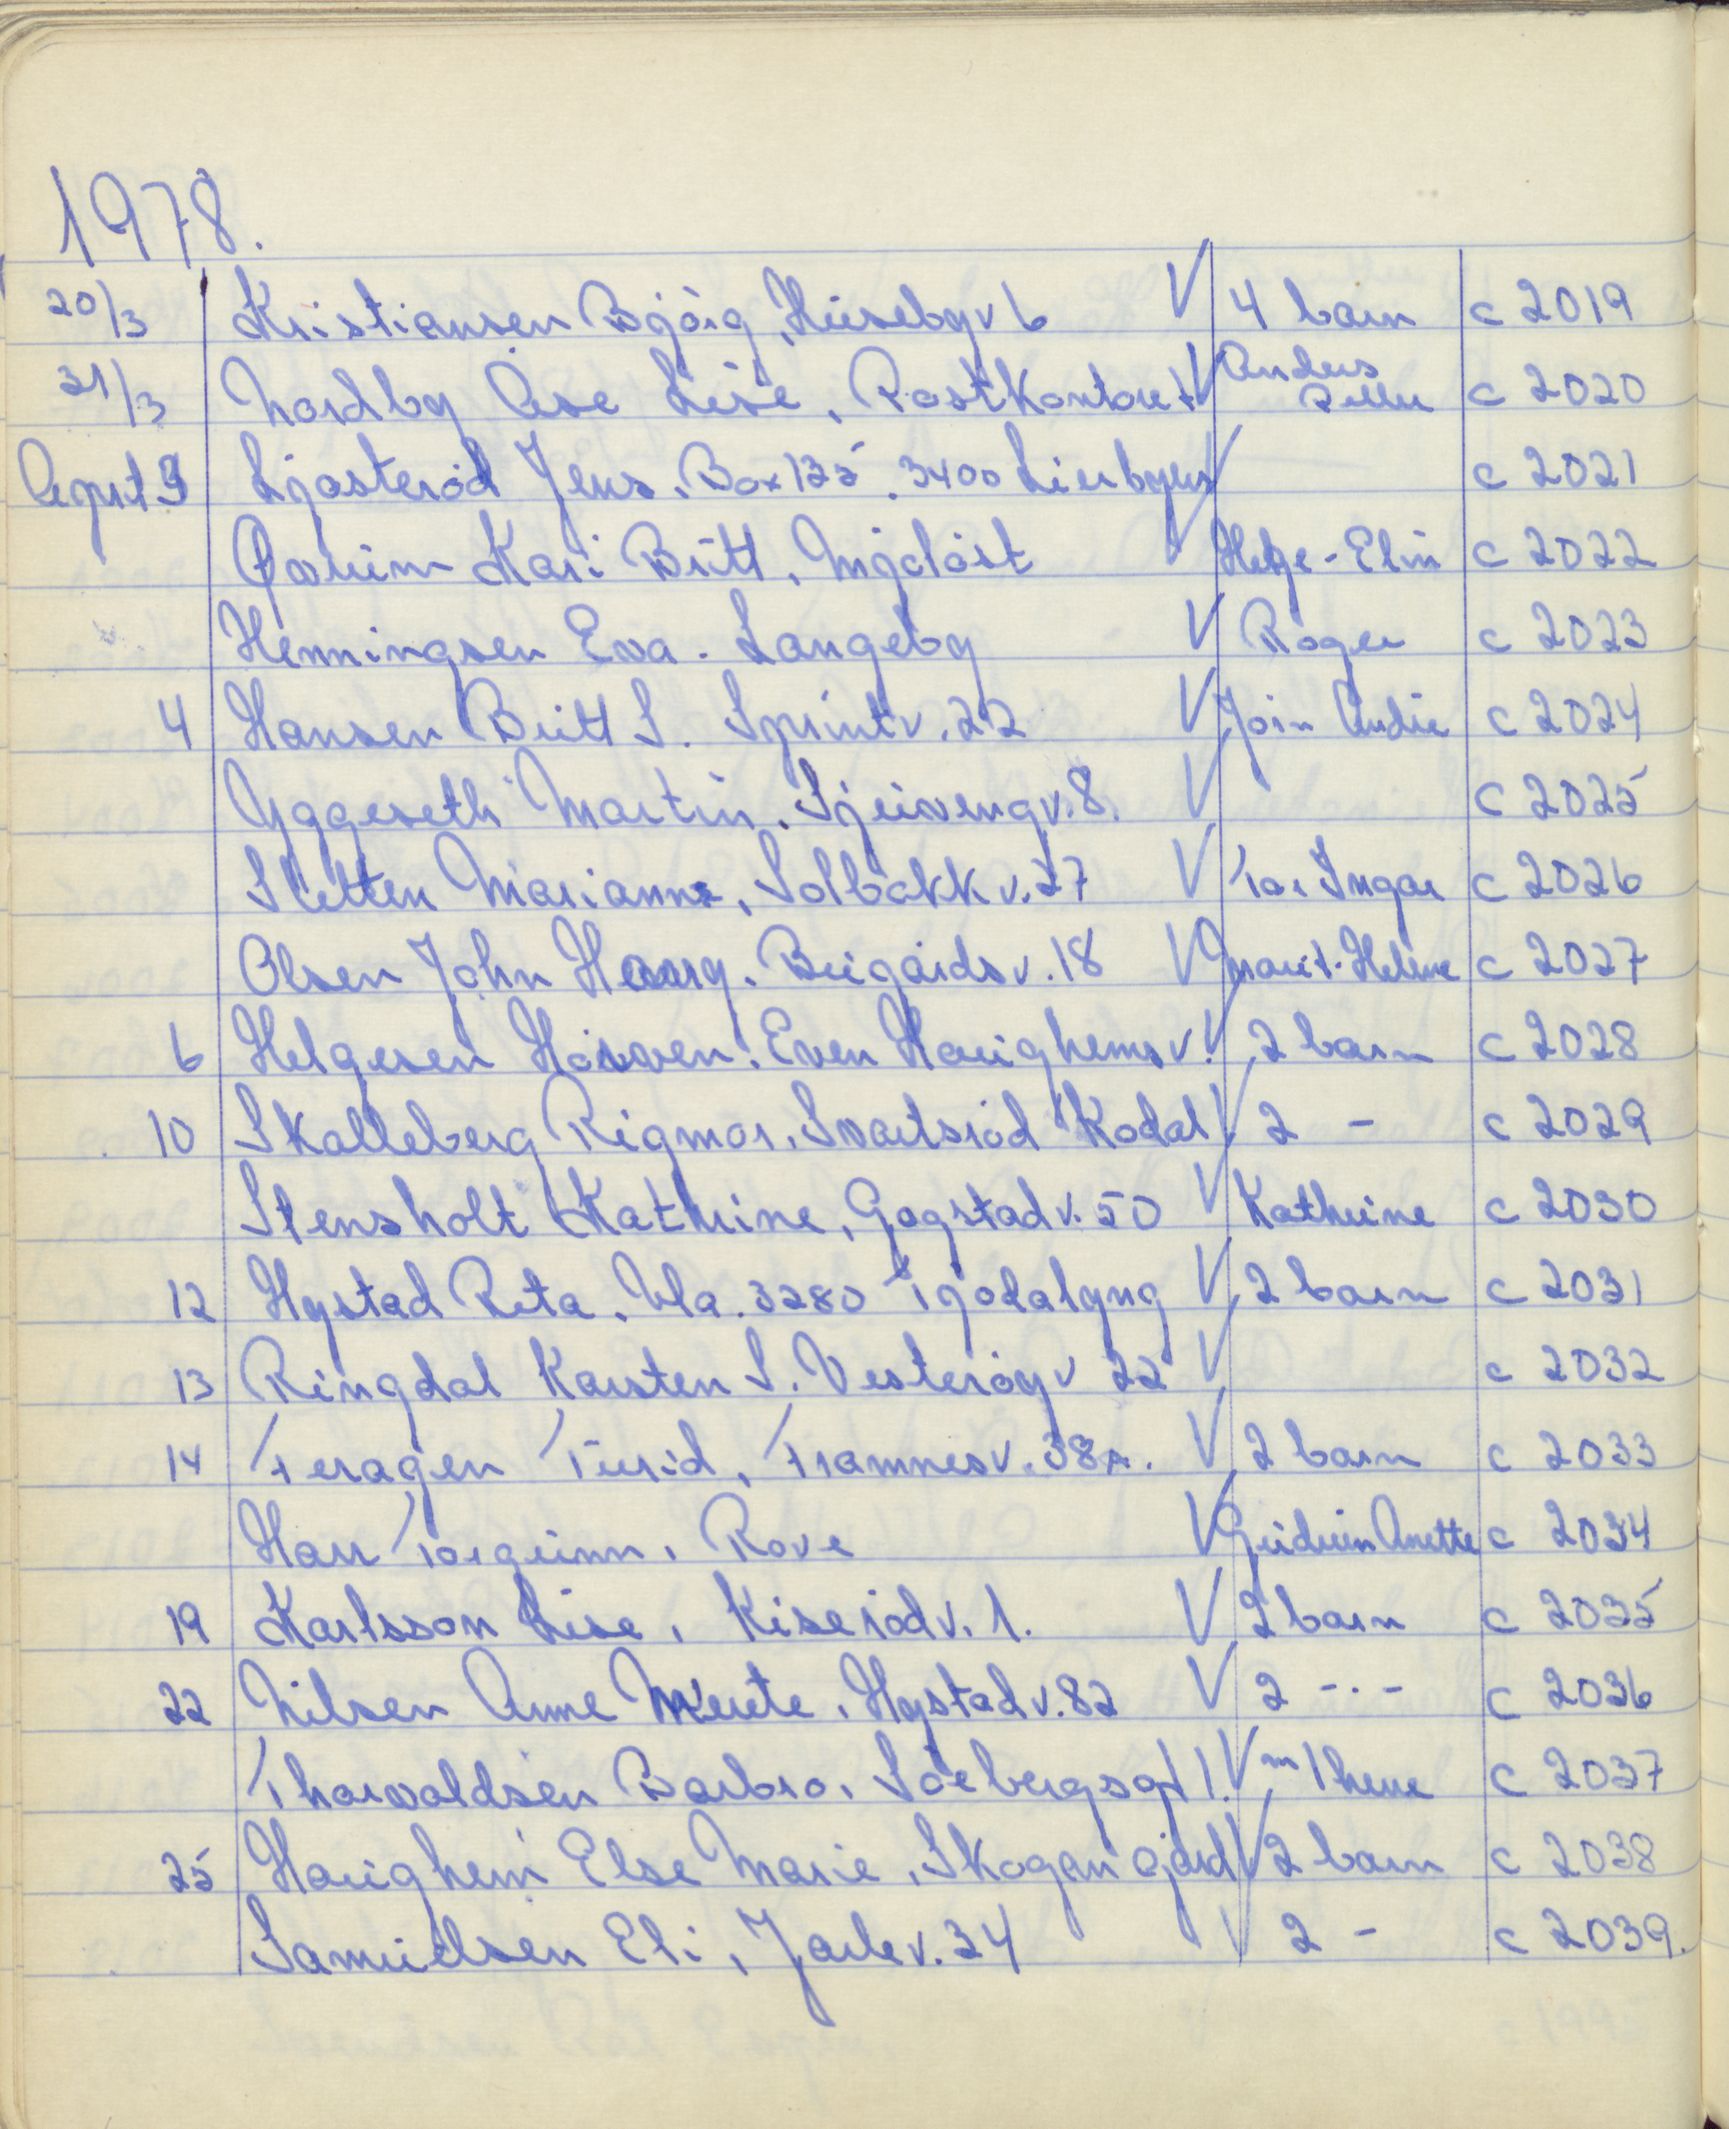 1978.
20/3 Kristiansen Bjørg, Husebyv 6 V 4 barn c 2019
31/3 Nordby Åse Lise, Postkontoret V Anders c 2020
April 3 Ljosterød Jens, Box 135. 3400 Lierbyen V c 2021
Kari Britt, Mjøløst V Helge-Elin c 2022
Henningsen Eva. Langeby V Roger c 2023
4 Hansen Britt S. Sprintv. 22 V Jörn André c 2024
Yggeseth Martin. V c 2025
Sletten Marianne, Solbakkv. 27 V Tor Ingar c 2026
Olsen John Harry. Brigårdsv. 18 V Marit-Helene c 2027
6 Helgesen Håvven. Even Haughemsv. V 2 barn c 2028
10 Skalleberg Rigmor, Svartsrød Kodal V 2 - c 2029
Stensholt Kathrine, Gogstadv. 50 V Kathrine c 2030
12 Hystad Rita, Ula. 3280 Tjodalyng V 2 barn c 2031
13 Ringdal Karsten S. Vesterøyv 22 V c 2032
14 Teragen Turid, Framnesv. 38A. V 2 barn c 2033
Harr Torgrinn, Rove V Gudrun Anette c 2034
19 Karlsson Lise, Kiserødv. 1. V 2 barn c 2035
22 Nilsen Anne Merete, Hystadv. 82 V 2 -.- c 2036
Thorvaldsen Barbro, Söebergsgt 1. V c 2037
25 Haughem Else Marie, Skogan gård V 2 barn c 2038
Samuelsen Eli, Jarlev. 34 V 2 - c 2039.